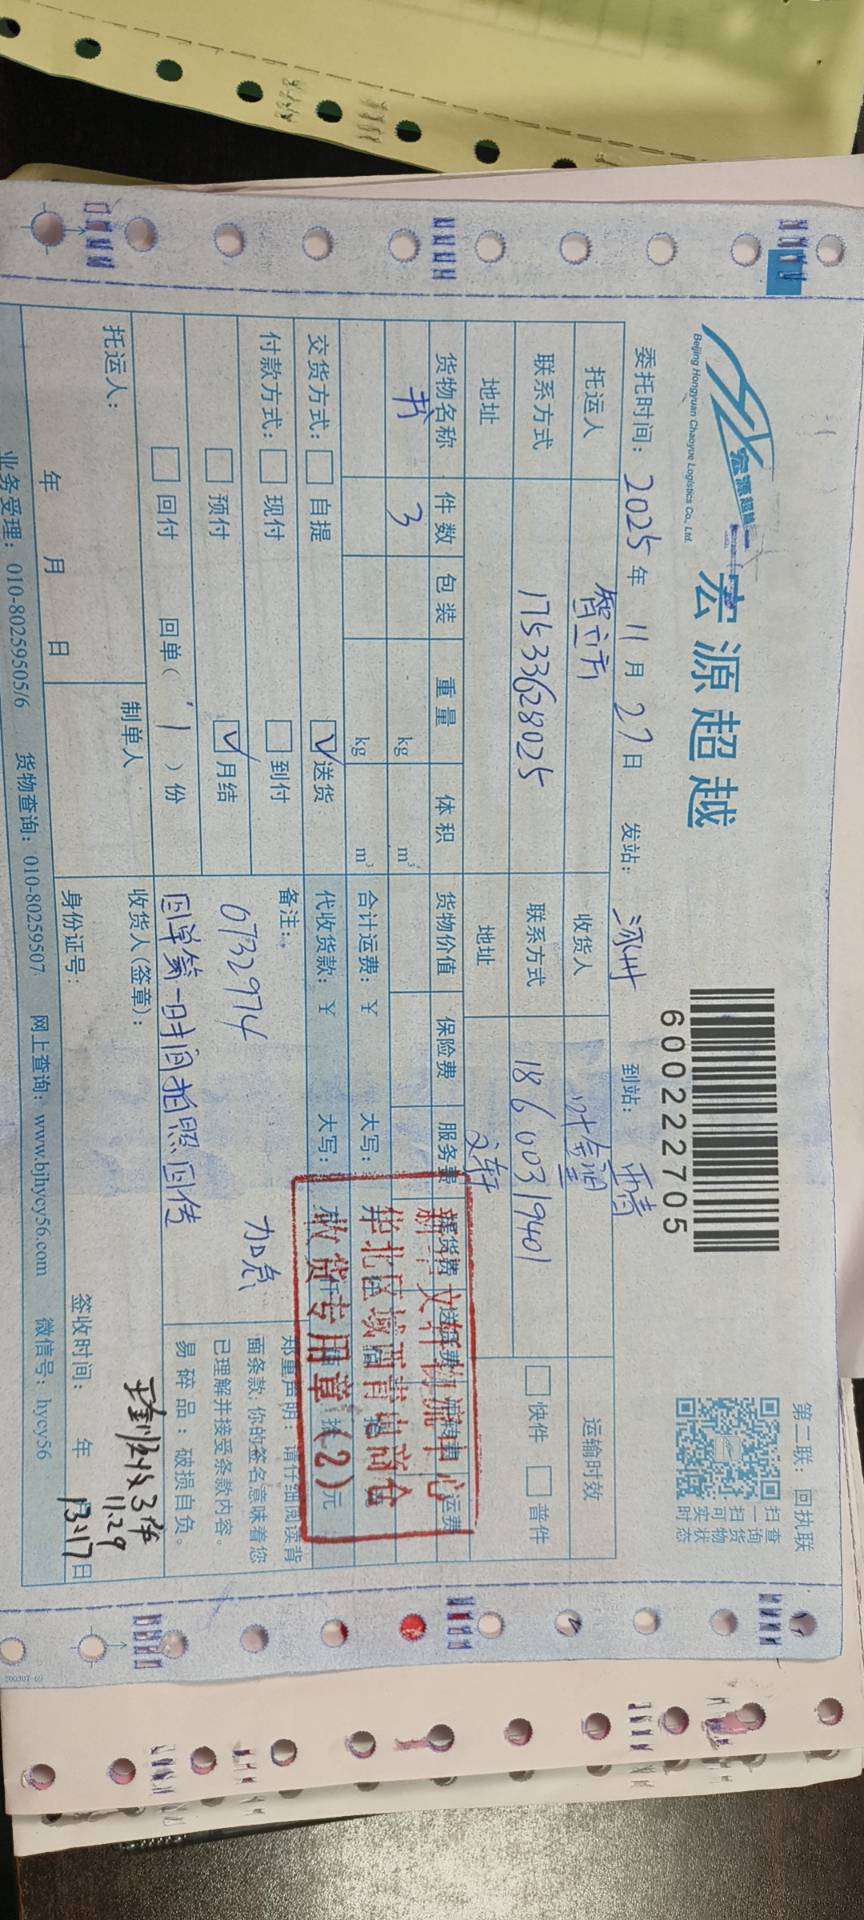 宏源超越
Beijing Hongyuan Chaoyue Logistics Co., Ltd.
宏源超越
600222705
第二联：回执联
扫一扫可实时
查询货物状态
委托时间：2025年11月27日 发站：涿州 到站：
托运人 智立方 收货人 运输时效
联系方式 17533628025 联系方式 18600319401 快件 普件
地址 地址 文轩
货物名称 件数 包装 重量 体积 货物价值 保险费 服务费 运费
书 3 kg m³
kg m³ 合计运费：¥ 大写：
交货方式： 自提 ✓送货 代收货款：¥ 大写： 元
付款方式： 现付 到付 备注： 加急
预付 ✓月结 0732974
回付 回单（1）份 回单第一时间拍照回传
郑重声明：请仔细阅读背
面条款，你的签名意味着您
已理解并接受条款内容。
易碎品：破损自负。
新华文轩物流中心
华北区域
收货专用章（2）
托运人： 制单人 收货人（签章）： 实收3件
11.29
年 月 日 身份证号： 签收时间： 年 13:17日
业务受理：010-80259505/6 货物查询：010-80259507 网上查询：www.bjhycy56.com 微信号：hycy56